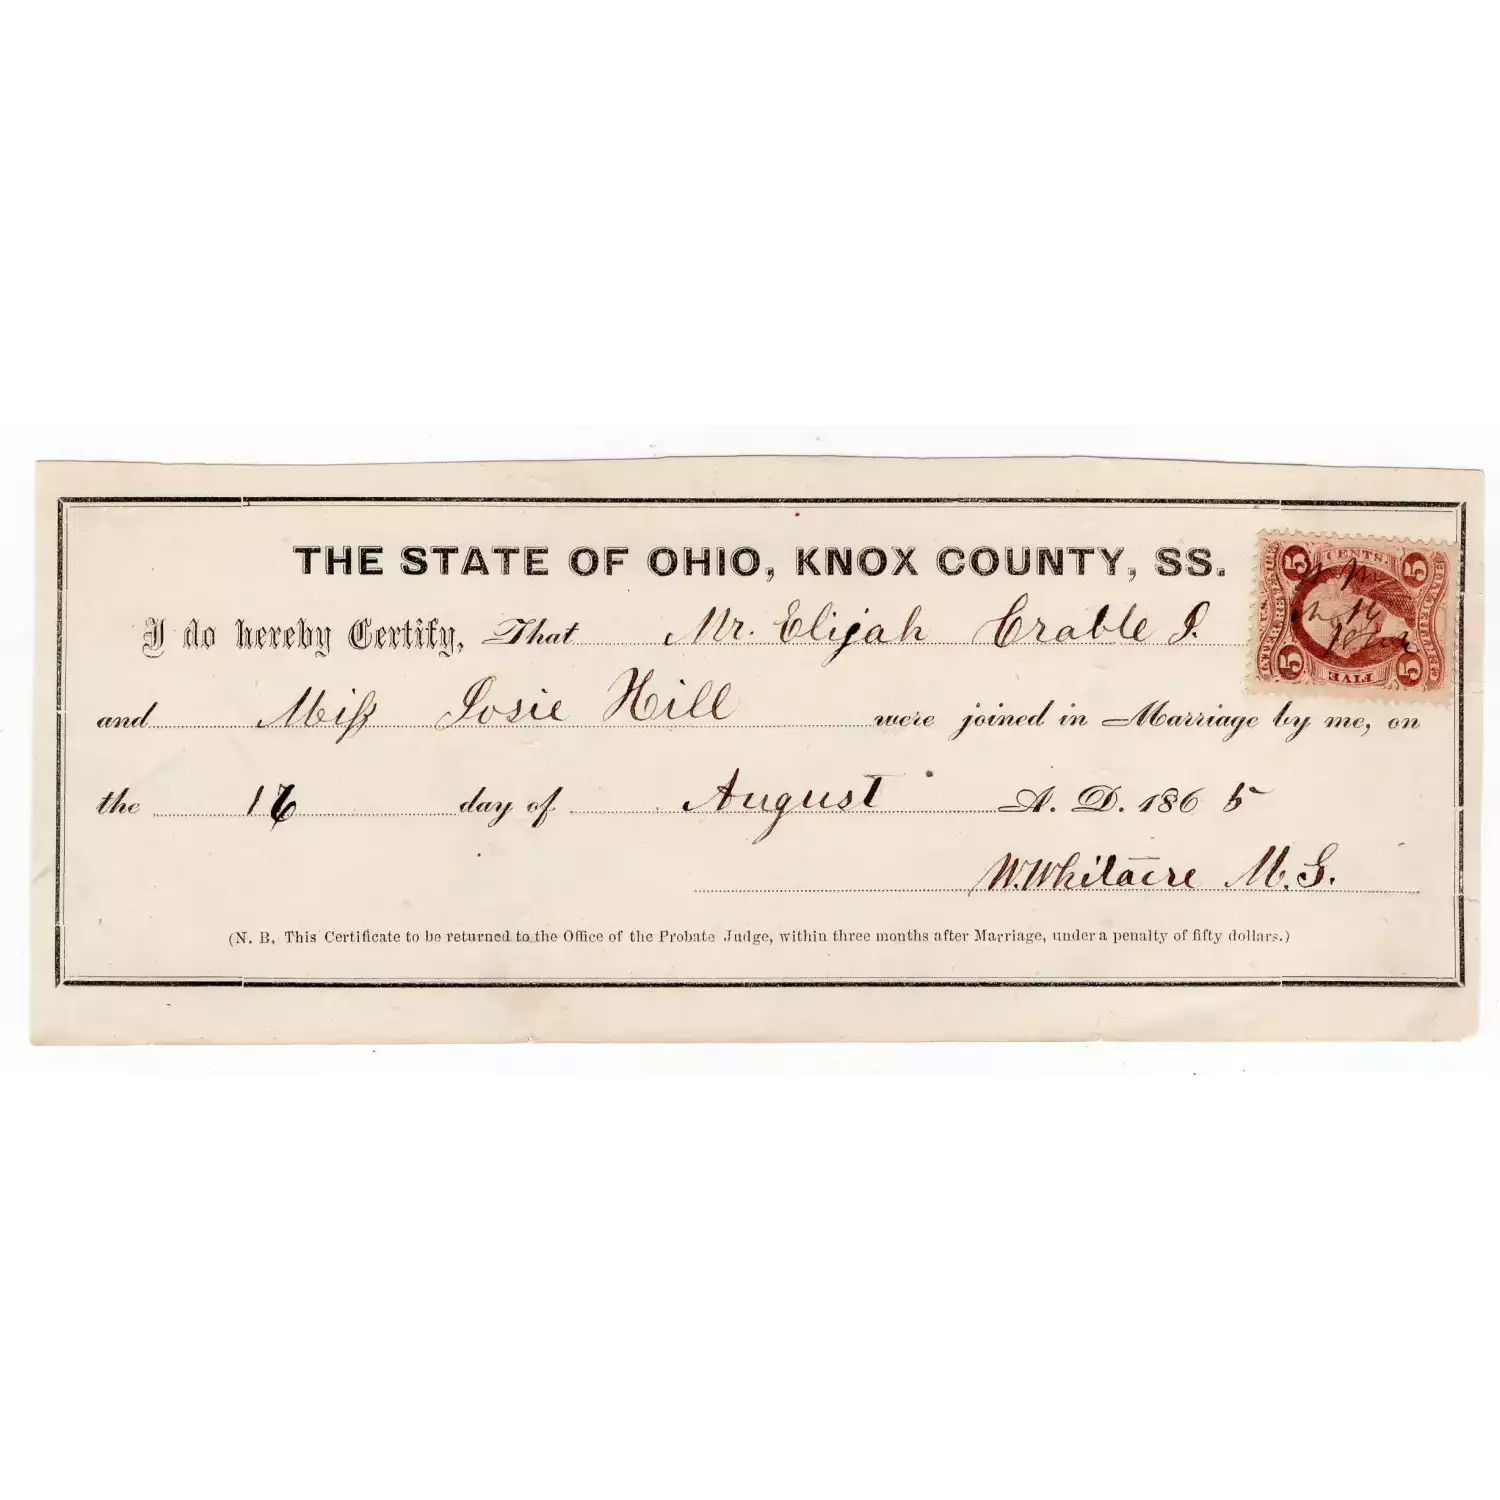 THE STATE OF OHIO, KNOX COUNTY, SS.
I do hereby Certify, That Mr. Elijah Crable J.
and Miss Josie Hill were joined in Marriage by me, on
the 16 day of August A. D. 1865
W. Whitacre M. G.
(N. B. This Certificate to be returned to the Office of the Probate Judge, within three months after Marriage, under a penalty of fifty dollars.)
5 CENTS. 5
5 FIVE 5